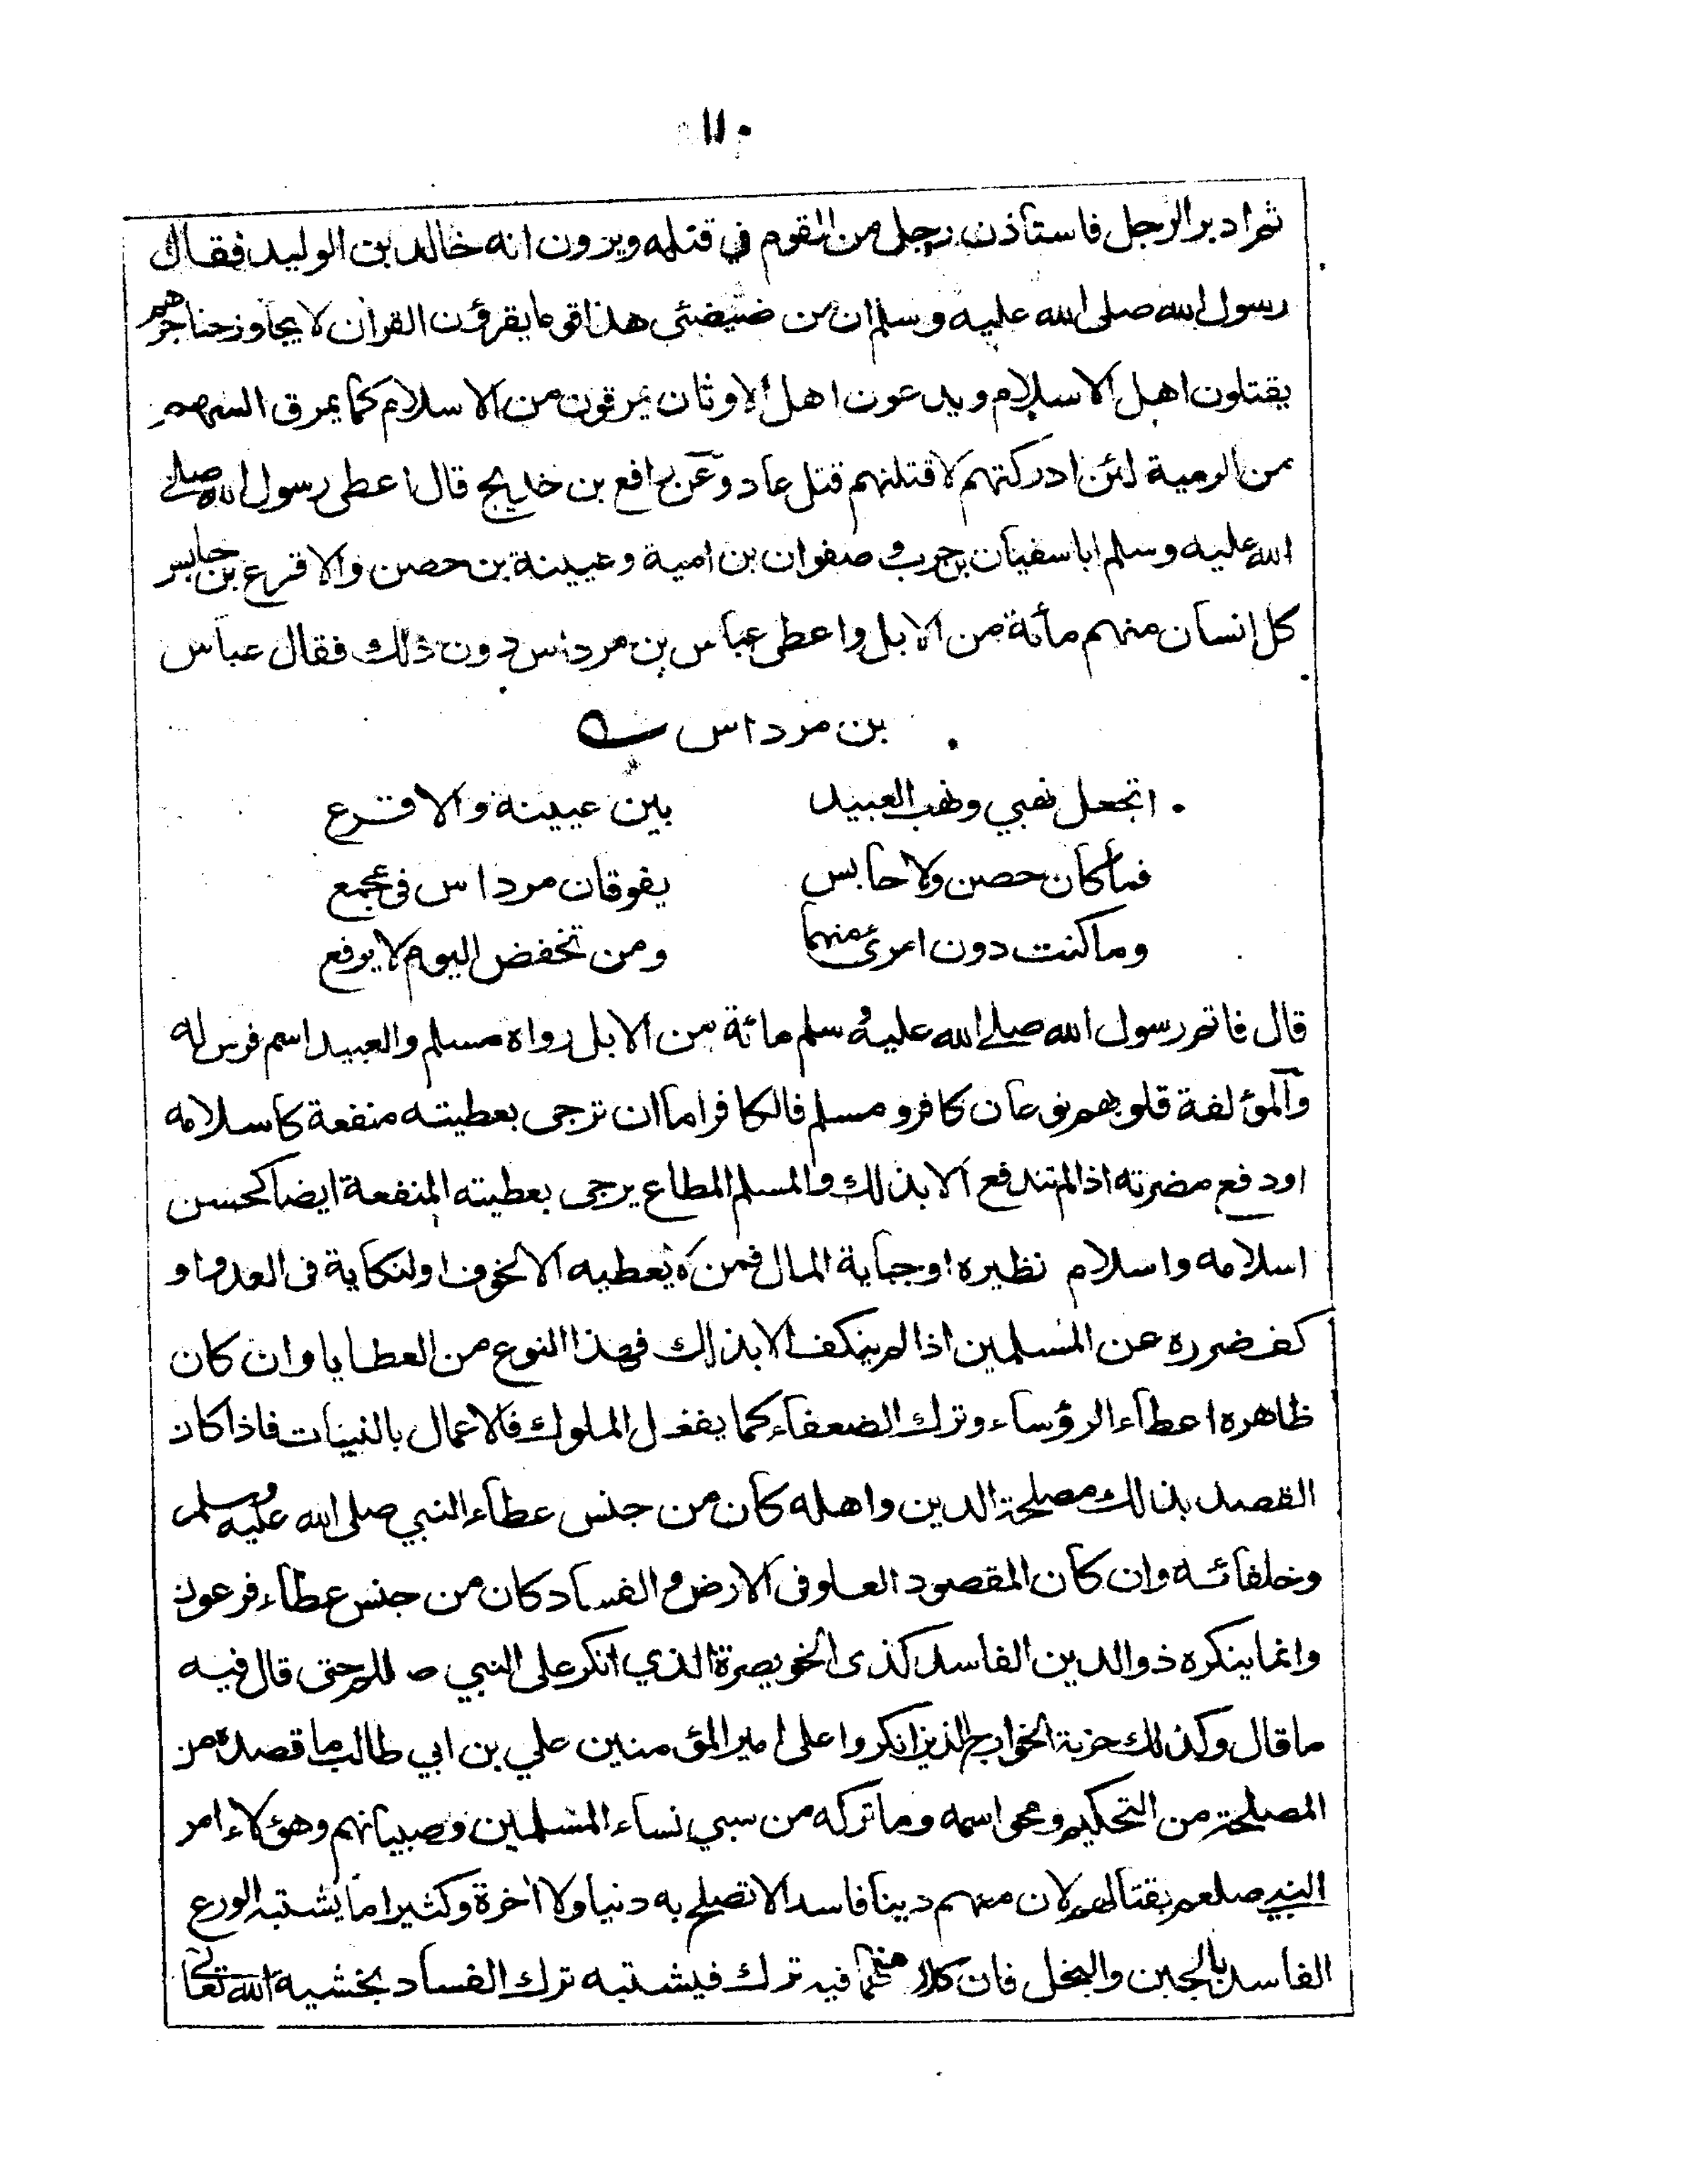 ١١٠
ثم ادبر الرجل فاستأذن رجل من القوم في قتله ويرون انه خالد بن الوليد فقال
رسول الله صلى الله عليه وسلم ان من ضئضئى هذا قوما يقرؤن القران لا يجاوز حناجرهم
يقتلون اهل الاسلام ويدعون اهل الاوثان يمرقون من الاسلام كما يمرق السهم
من الرمية لئن ادركتهم لاقتلنهم قتل عاد وعن رافع بن خديج قال اعطى رسول الله صلى
الله عليه وسلم ابا سفيان بن حرب و صفوان بن امية وعيينة بن حصن والاقرع بن حابس
كل انسان منهم مأئة من الابل واعطى عباس بن مرداس دون ذلك فقال عباس
بن مرداس
اتجعل نهبي ونهب العبيد بين عيينة والاقرع
فما كان حصن ولا حابس يفوقان مرداس في مجمع
وما كنت دون امرئ منهما ومن تخفض اليوم لا يرفع
قال فاتم رسول الله صلى الله عليه وسلم مائة من الابل رواه مسلم والعبيد اسم فرس له
والمؤلفة قلوبهم نوعان كافر و مسلم فالكافر اما ان ترجى بعطيته منفعة كاسلامه
او دفع مضرته اذا لم تندفع الا بذلك والمسلم المطاع يرجى بعطيته المنفعة ايضا كحسن
اسلامه واسلام نظيره او جباية المال فمن لا يعطيه الا لخوف او لنكاية في العدو او
كف ضرره عن المسلمين اذا لم ينكف الا بذلك فهذا النوع من العطايا وان كان
ظاهره اعطاء الرؤساء وترك الضعفاء كما يفعل الملوك فالاعمال بالنيات فاذا كان
القصد بذالك مصلحة الدين واهله كان من جنس عطاء النبي صلى الله عليه وسلم
وخلفائه وان كان المقصود العلو في الارض و الفساد كان من جنس عطاء فرعون
وانما ينكره ذو الدين الفاسد كذى الخويصرة الذي انكر على النبي حتى قال فيه
ما قال وكذلك حزبة الخوارج الذين انكروا على امير المؤمنين علي بن ابي طالب ما قصده من
المصلحة من التحكيم ومحى اسمه وما تركه من سبي نساء المسلمين وصبيانهم وهؤلاء امر
النبي صلعم بقتالهم لان معهم دينا فاسدا لا تصلح به دنيا ولا اخرة وكثيرا ما يشتبه الورع
الفاسد بالجبن والبخل فان كلا منهما فيه ترك فيشتبه ترك الفساد بخشية الله تعالى